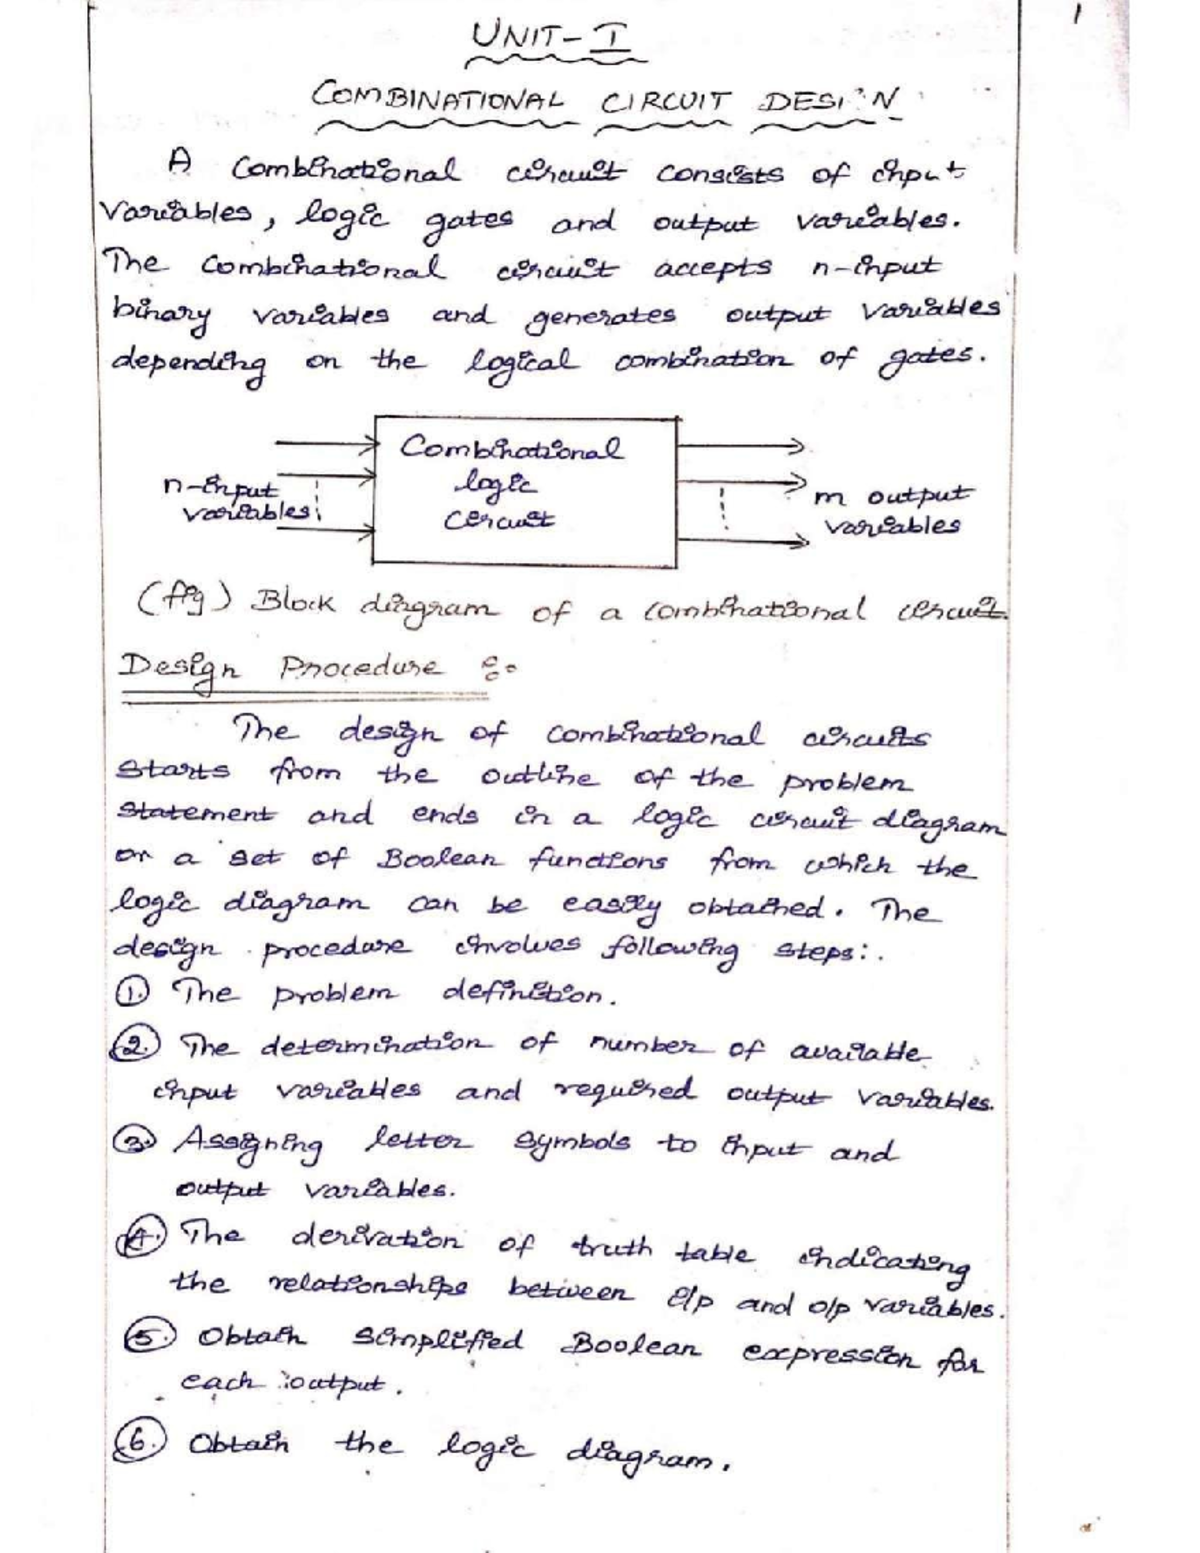 1
UNIT-I
COMBINATIONAL CIRCUIT DESIGN
A Combinational circuit consists of input
Variables, logic gates and output variables.
The Combinational circuit accepts n-input
binary variables and generates output variables
depending on the logical combination of gates.
n-input
variables
Combinational
logic
circuit
m output
variables
(fig) Block diagram of a combinational circuit.
Design Procedure :-
The design of combinational circuits
starts from the outline of the problem
statement and ends in a logic circuit diagram
or a set of Boolean functions from which the
logic diagram can be easily obtained. The
design procedure involves following steps:.
1. The problem definition.
2. The determination of number of available
input variables and required output variables.
3. Assigning letter symbols to input and
output variables.
4. The derivation of truth table indicating
the relationships between i/p and o/p variables.
5. Obtain simplified Boolean expression for
each output.
6. Obtain the logic diagram.